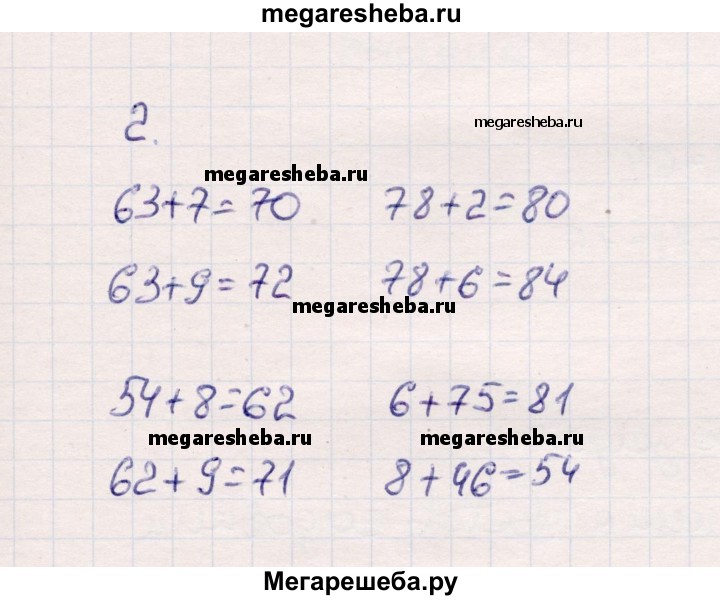 megaresheba.ru
2.
megaresheba.ru
megaresheba.ru
63+7=70 78+2=80
63+9=72 78+6=84
megaresheba.ru
54+8=62 6+75=81
megaresheba.ru megaresheba.ru
62+9=71 8+46=54
Мегарешеба.ру